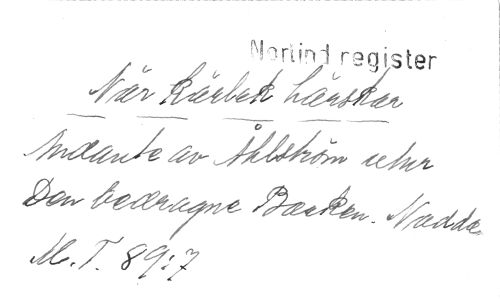 Nortind register
När kärlek härskar
Andante av Åhlström utur
Den bedragne Backen. Nadde
M. T. 89:7